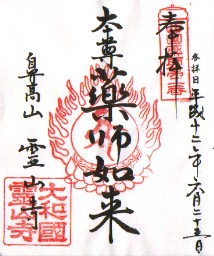 奉拝
参拝日 平成十三年六月二十五日
本尊 薬師如来
鼻高山 霊山寺
大和國
霊山寺